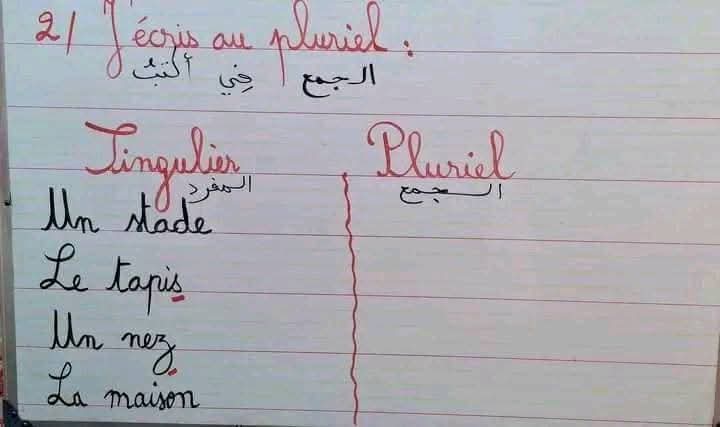 2/ J'écris au pluriel :
أكتبُ فِي الجمع
Singulier Pluriel
المفرد الجمع
Un stade
Le tapis
Un nez
La maison